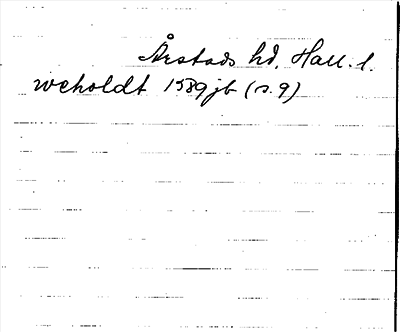 Årstads hd, Hall. l.
weholdt 1589 jb (s. 9)